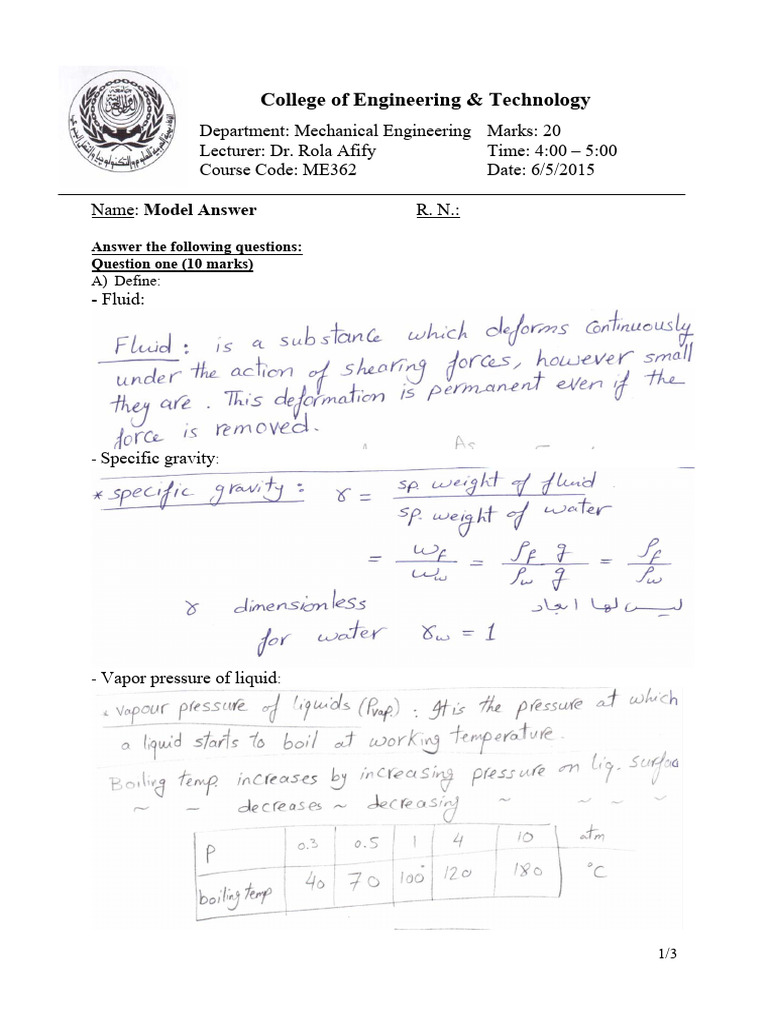 College of Engineering & Technology
Department: Mechanical Engineering Marks: 20
Lecturer: Dr. Rola Afify Time: 4:00 – 5:00
Course Code: ME362 Date: 6/5/2015
Name: Model Answer R. N.:
Answer the following questions:
Question one (10 marks)
A) Define:
- Fluid:
Fluid: is a substance which deforms continuously
under the action of shearing forces, however small
they are. This deformation is permanent even if the
force is removed.
As
- Specific gravity:
* specific gravity: γ = sp. weight of fluid / sp. weight of water
= w_f / w_w = ρ_f g / ρ_w g = ρ_f / ρ_w
γ dimensionless ليس لها ابعاد
for water γ_w = 1
- Vapor pressure of liquid:
* Vapour pressure of liquids (Pvap.): It is the pressure at which
a liquid starts to boil at working temperature.
Boiling temp. increases by increasing pressure on liq. surfac
~ – decreases ~ decreasing ~ ~ ~ ~
P 0.3 0.5 1 4 10 atm
boiling temp 40 70 100 120 180 °C
1/3